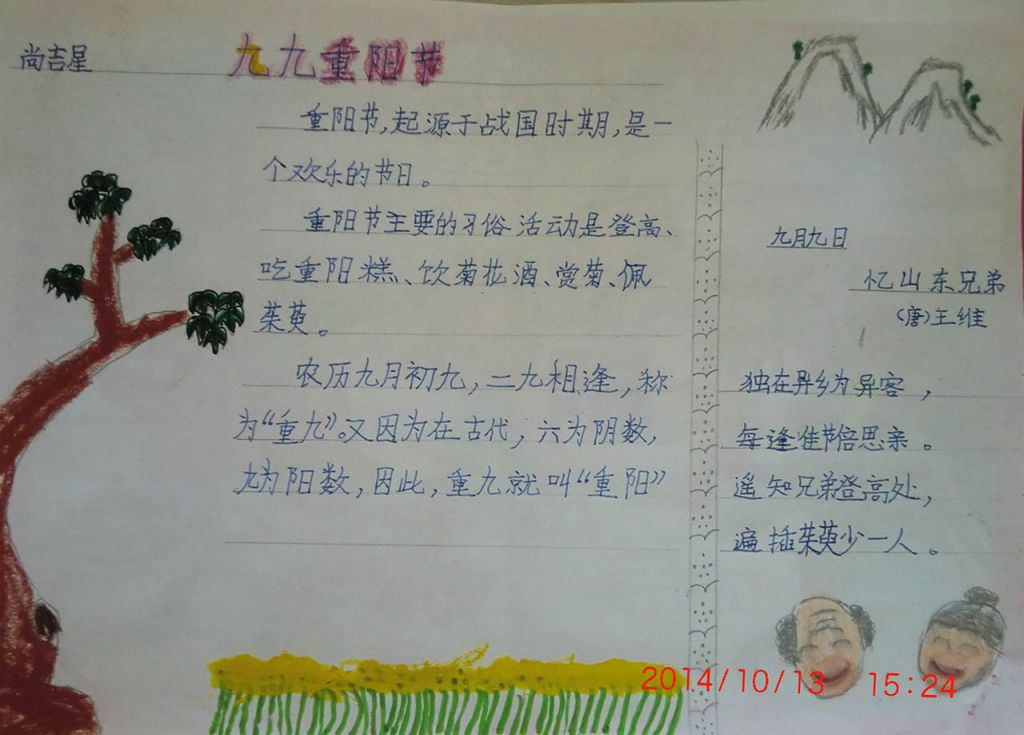 尚吉星
九九重阳节
重阳节,起源于战国时期,是一
个欢乐的节日。
重阳节主要的习俗活动是登高、
吃重阳糕、饮菊花酒、赏菊、佩
茱萸。
农历九月初九,二九相逢,称
为“重九”。又因为在古代,六为阴数,
九为阳数,因此,重九就叫“重阳”
九月九日
忆山东兄弟
(唐)王维
独在异乡为异客,
每逢佳节倍思亲。
遥知兄弟登高处,
遍插茱萸少一人。
2014/10/13 15:24